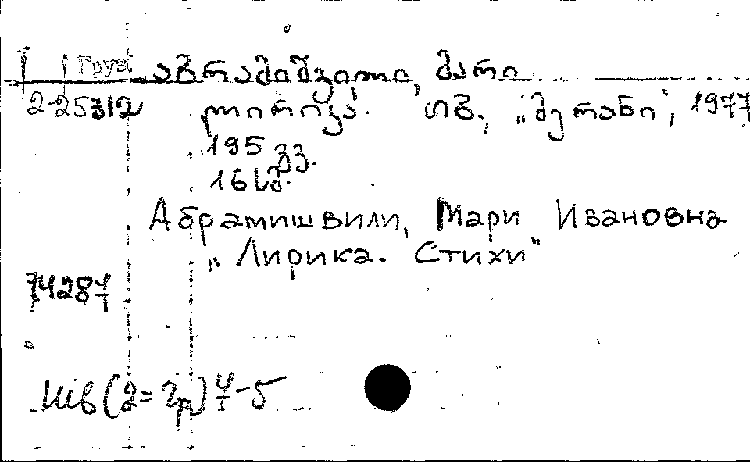 Груз აბრამიშვილი, მარი
2-25312 ლირიკა. თბ., „მერანი“, 1977
195 გვ.
16 სმ.
Абрамишвили, Мари Ивановна
„Лирика. Стихи“
74287
Шв(2=Гр)